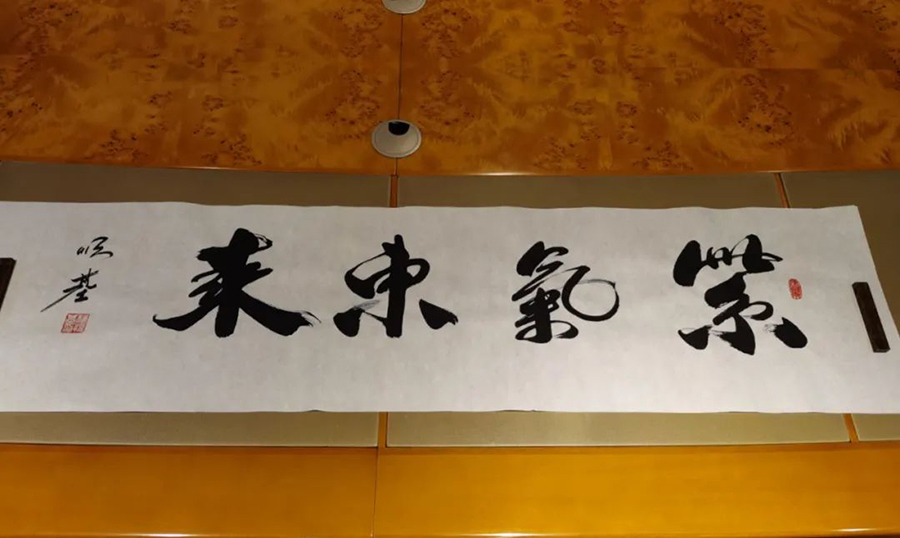 紫氣東來
順基